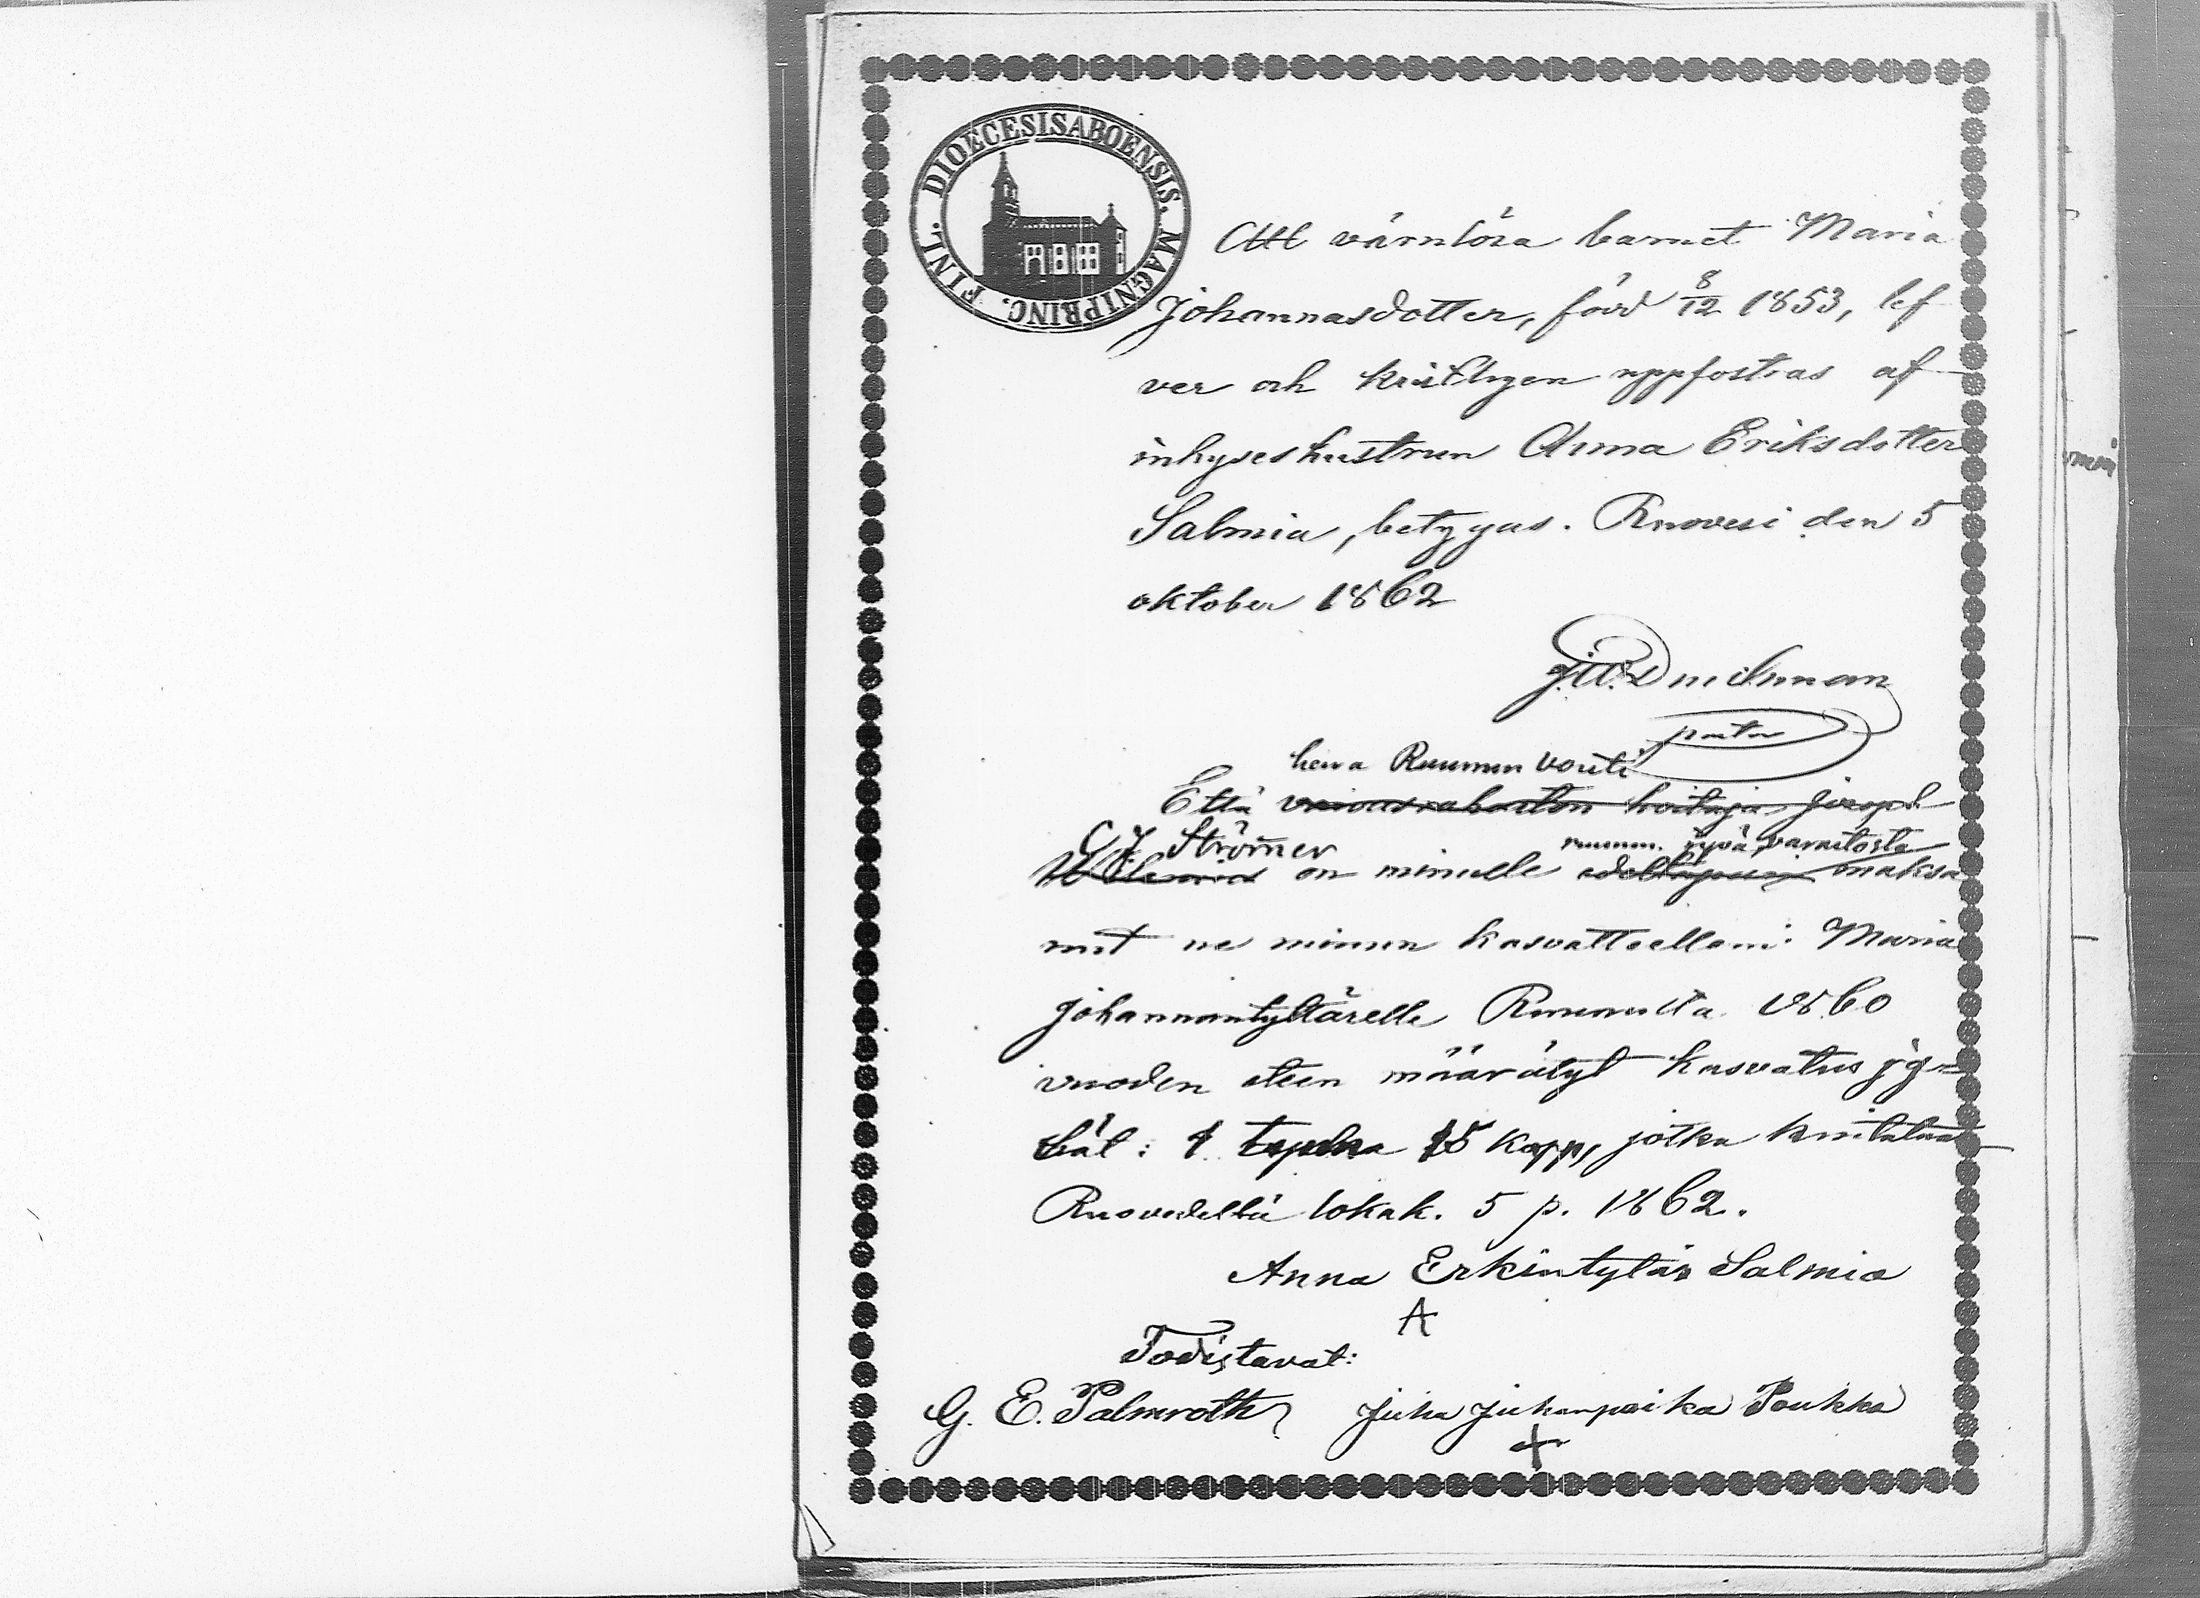 DIOECESIS ABOENSIS. MAGNI PRINC. FINL.
Att värnlösa barnet Maria
Johannasdotter, född 8/12 1853, lef
ver och kristligen uppfostras af
inhyseshustrun Anna Eriksdotter
Salmia, betygas. Ruovesi den 5
oktober 1862
pastor
herra Ruunun vouti
Että hoitaja
C J. Strömer ruunun jyvä varaitosta
on minulle maksa
nut ne minun kasvatteelleni Maria
Johannantyttärelle Ruunulta 1860
vuoden eteen määrätyt kasvatus jy=
vät: 1 15 kapp, jotka kuitataan
Ruovedellä lokak. 5 p. 1862.
Anna Erkintytär Salmia
A
Todistavat:
G. E. Palmroth Juha Juhanpoika Poukka
+